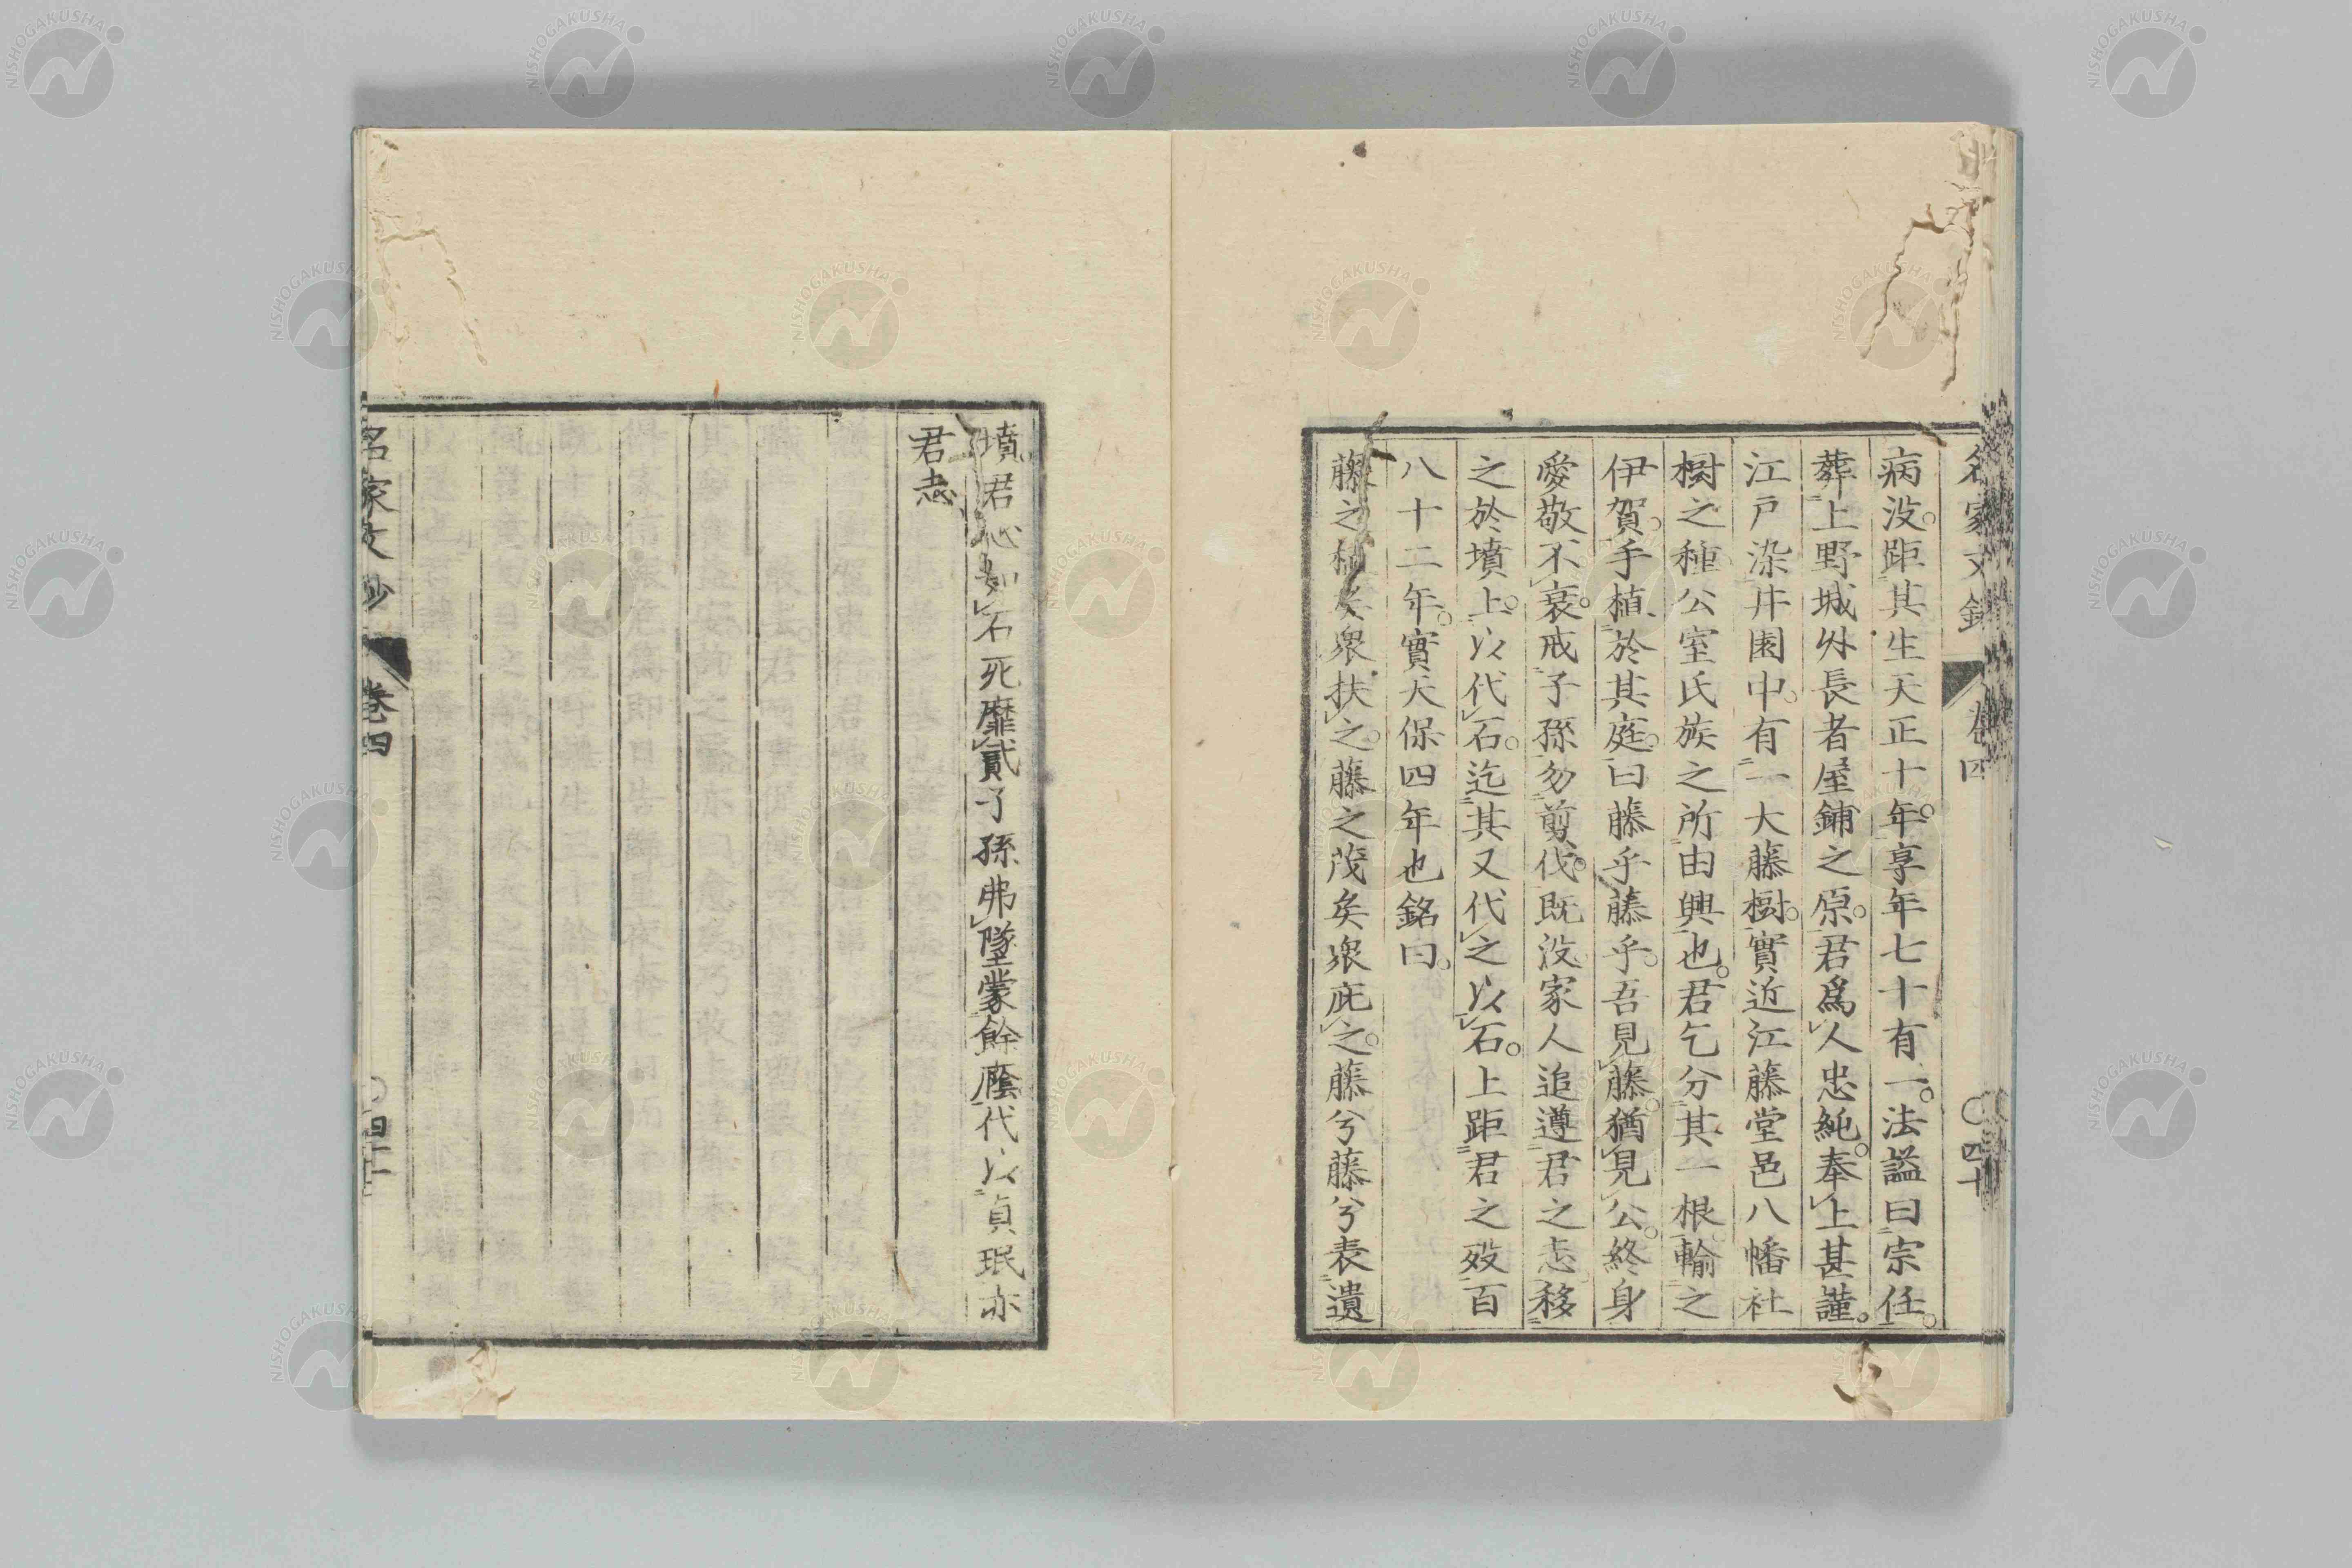 名家文鈔 卷四 〇四十
病没。距其生天正十年。享年七十有一。法謚曰宗任。
葬上野城外長者屋鋪之原。君爲人忠純。奉上甚謹。
江戸染井園中。有一大藤樹。實近江藤堂邑八幡社
樹之種。公室氏族之所由興也。君乞分其一根。輸之
伊賀。手植於其庭。曰藤乎藤乎。吾見藤。猶見公。終身
愛敬不衰。戒子孫勿剪伐。既没家人追遵君之志。移
之於墳上。以代石。迄其又代之以石。上距君之歿百
八十二年。實天保四年也銘曰。
藤之植矣衆扶之。藤之茂矣衆庇之。藤兮藤兮表遺
墳君心如石死靡貳子孫弗墜蒙餘廕代以貞珉亦
君志
名家文鈔 卷四 〇四十一
NISHOGAKUSHA